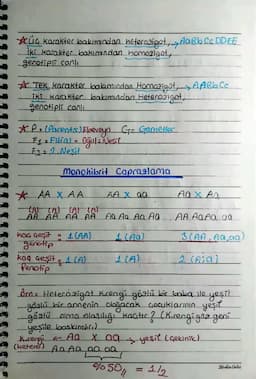 ★ Üç karakter bakımından heterozigot, → AaBbCcDDEE
İki karakter bakımından homozigot,
genotipli canlı
★ Tek karakter bakımından Homozigot, → AABbCc
İki karakter bakımından Heterozigot,
genotipli canlı
★ P = (Parents) Ebeveyn G = Gametler
F1 = Filial = Oğul = Nesil
F2 = 2. Nesil
Monohibrit Çaprazlama
★ AA X AA AA X aa Aa X Aa
(A) (A) (A) (A)
AA AA AA AA Aa Aa Aa Aa AA Aa Aa aa
kaç çeşit genotip = 1 (AA) 1 (Aa) 3 (AA, Aa, aa)
kaç çeşit fenotip = 1 (A) 1 (A) 2 (A, a)
Örn: Heterozigot K.rengi gözlü bir baba ile yeşil
gözlü bir annenin doğacak çocuklarının yeşil
gözlü olma olasılığı kaçtır? (K.rengi göz geni
yeşile baskındır.)
K.rengi ← Aa X aa → yeşil (çekinik)
Aa Aa, aa aa
%50 = 1/2